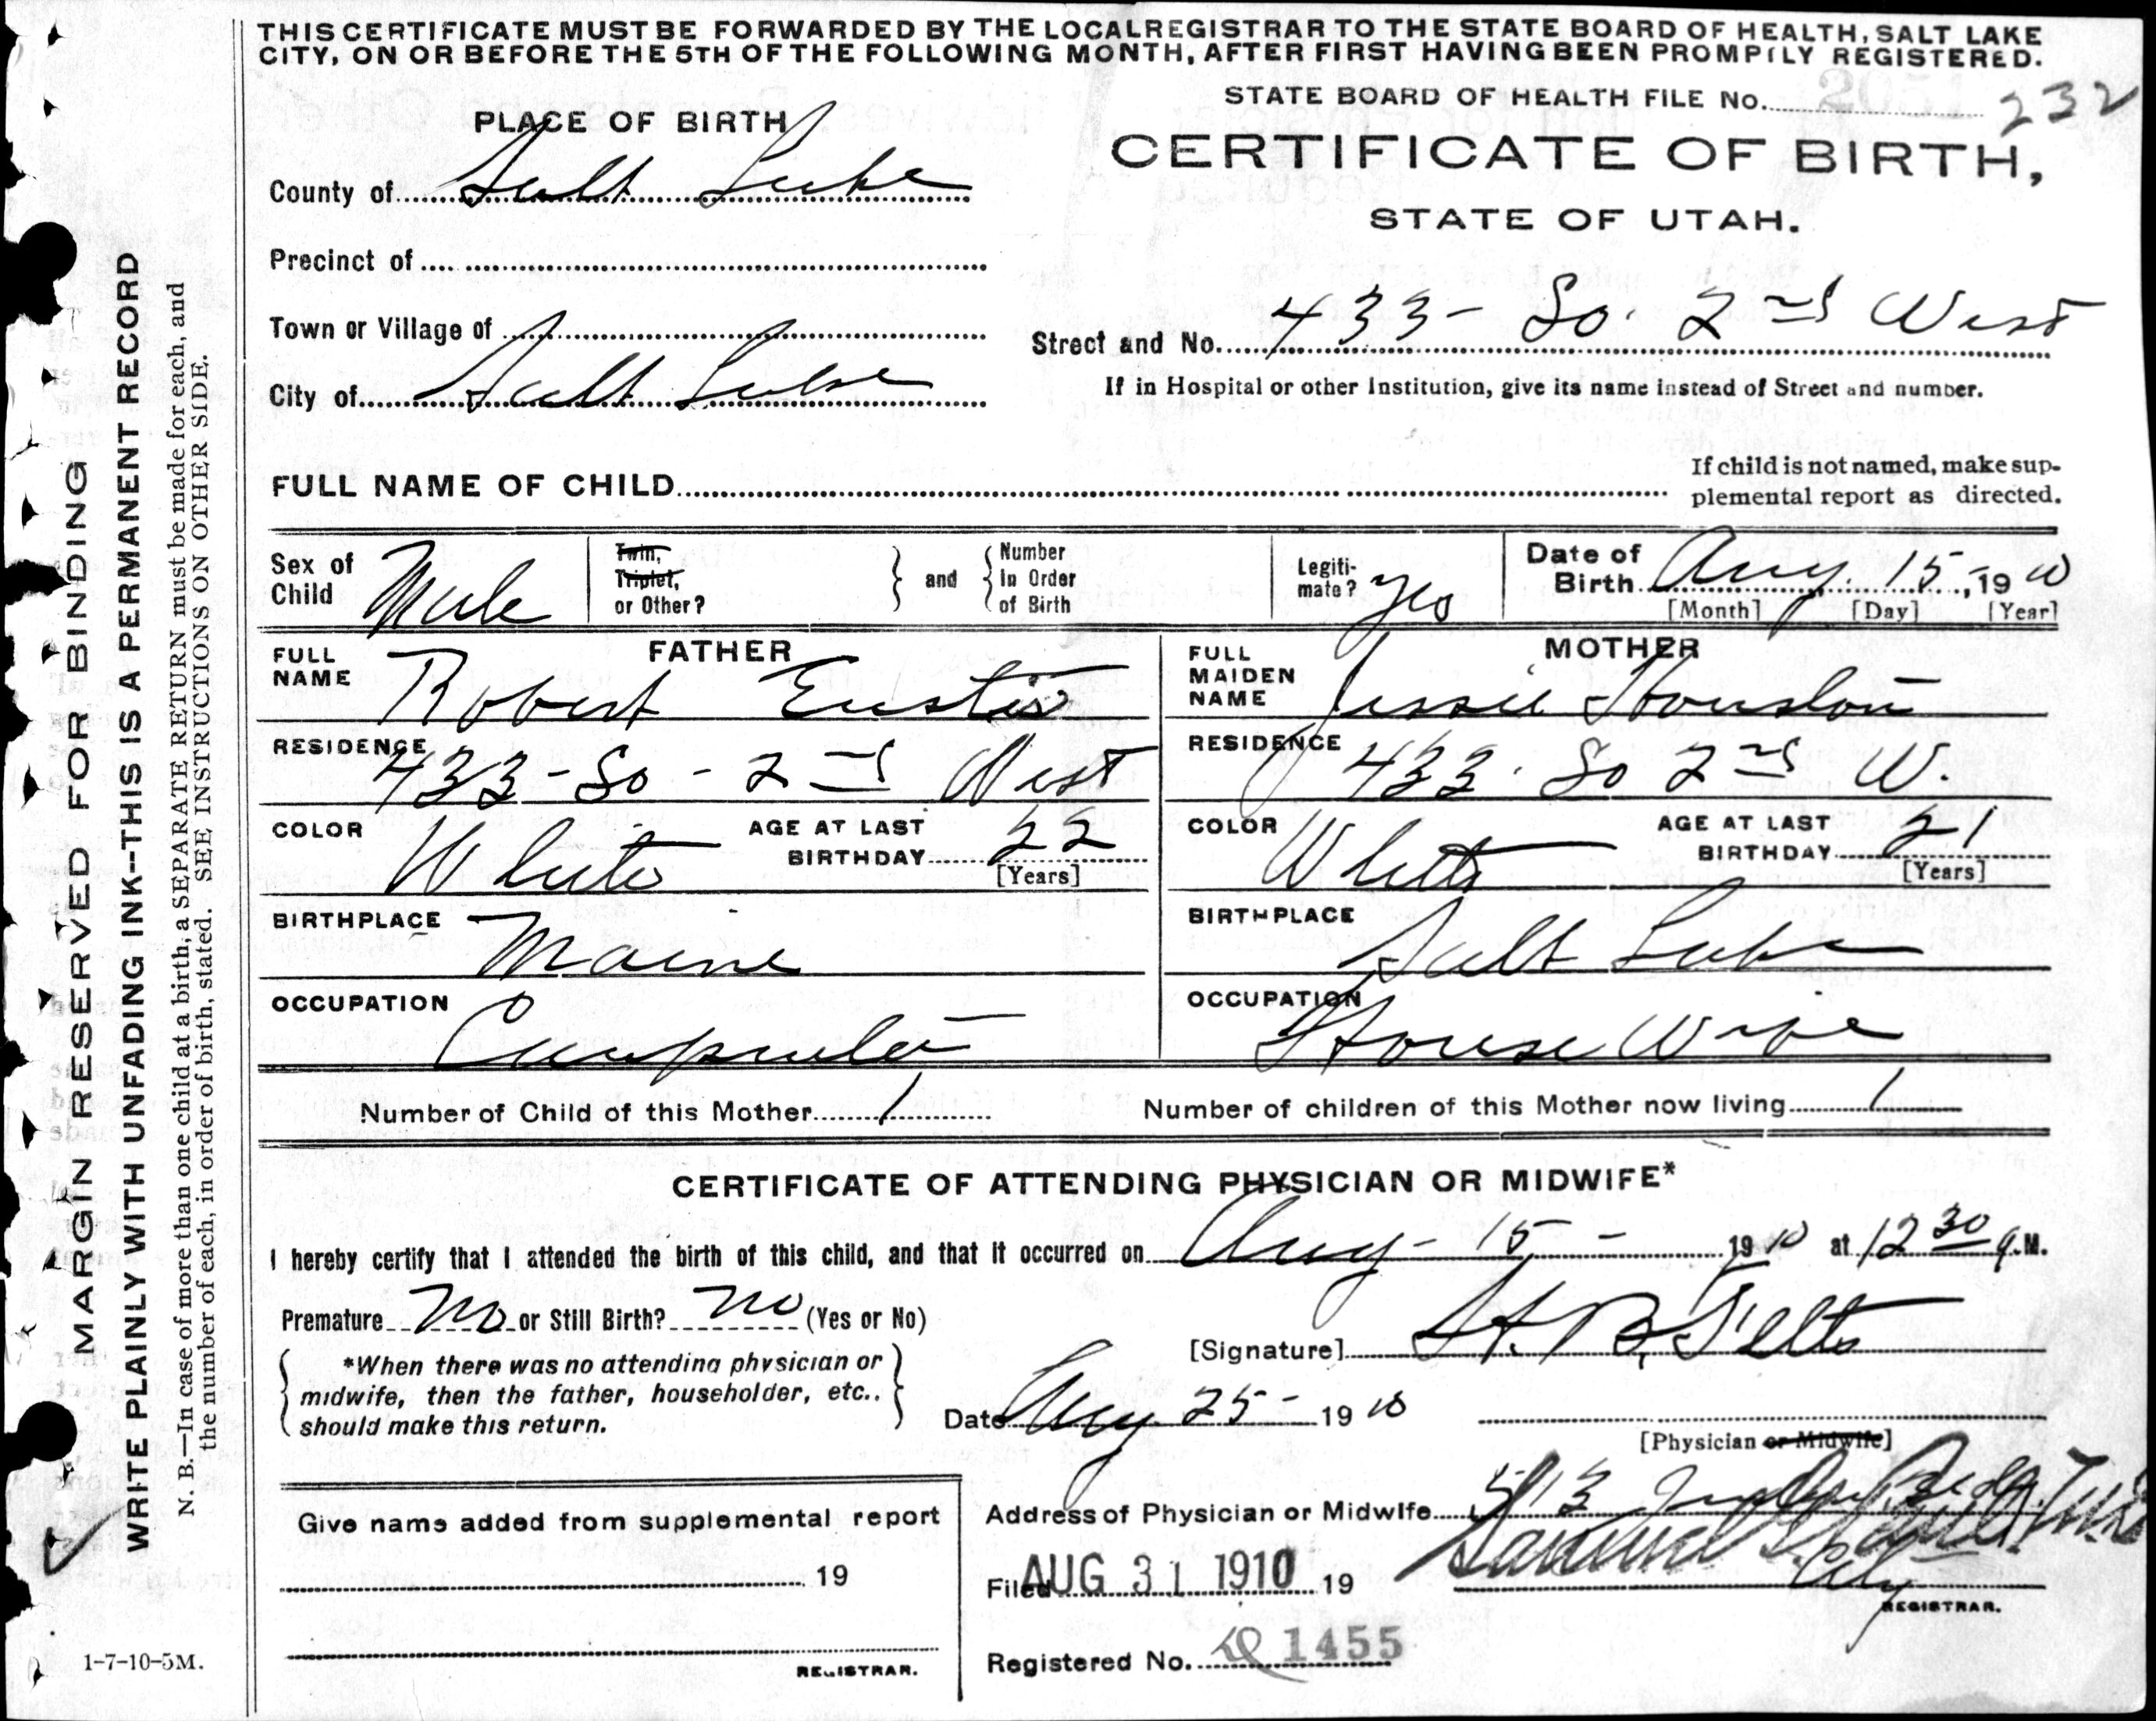 THIS CERTIFICATE MUST BE FORWARDED BY THE LOCAL REGISTRAR TO THE STATE BOARD OF HEALTH, SALT LAKE
CITY, ON OR BEFORE THE 5TH OF THE FOLLOWING MONTH, AFTER FIRST HAVING BEEN PROMPTLY REGISTERED.
STATE BOARD OF HEALTH FILE No. 232
PLACE OF BIRTH
CERTIFICATE OF BIRTH,
STATE OF UTAH.
County of Salt Lake
Precinct of
Town or Village of
Street and No. 433- So. 2nd West
City of Salt Lake
If in Hospital or other Institution, give its name instead of Street and number.
FULL NAME OF CHILD
If child is not named, make sup-
plemental report as directed.
Sex of Child Male
Twin, Triplet, or Other?
and
Number In Order of Birth
Legiti-mate? Yes
Date of Birth Aug. 15-, 1910
[Month] [Day] [Year]
FATHER
FULL NAME Robert Eustis
RESIDENCE 433-So-2nd West
COLOR White
AGE AT LAST BIRTHDAY 22
[Years]
BIRTHPLACE Maine
OCCUPATION Carpenter
MOTHER
FULL MAIDEN NAME Jessie Houston
RESIDENCE 433. So 2nd W.
COLOR White
AGE AT LAST BIRTHDAY 21
[Years]
BIRTHPLACE Salt Lake
OCCUPATION House Wife
Number of Child of this Mother 1
Number of children of this Mother now living 1
CERTIFICATE OF ATTENDING PHYSICIAN OR MIDWIFE*
I hereby certify that I attended the birth of this child, and that it occurred on Aug- 15 - 1910 at 12 30 M.
Premature No or Still Birth? No (Yes or No)
*When there was no attending physician or
midwife, then the father, householder, etc.,
should make this return.
[Signature] H. B. Felts
Date Aug 25- 1910
[Physician or Midwife]
Address of Physician or Midwife 513 Bldg.
City
Give name added from supplemental report
19
REGISTRAR.
Filed AUG 31 1910 19
REGISTRAR.
Registered No. 1455
MARGIN RESERVED FOR BINDING
WRITE PLAINLY WITH UNFADING INK--THIS IS A PERMANENT RECORD
N. B.—In case of more than one child at a birth, a SEPARATE RETURN must be made for each, and
the number of each, in order of birth, stated. SEE INSTRUCTIONS ON OTHER SIDE.
1-7-10-5M.